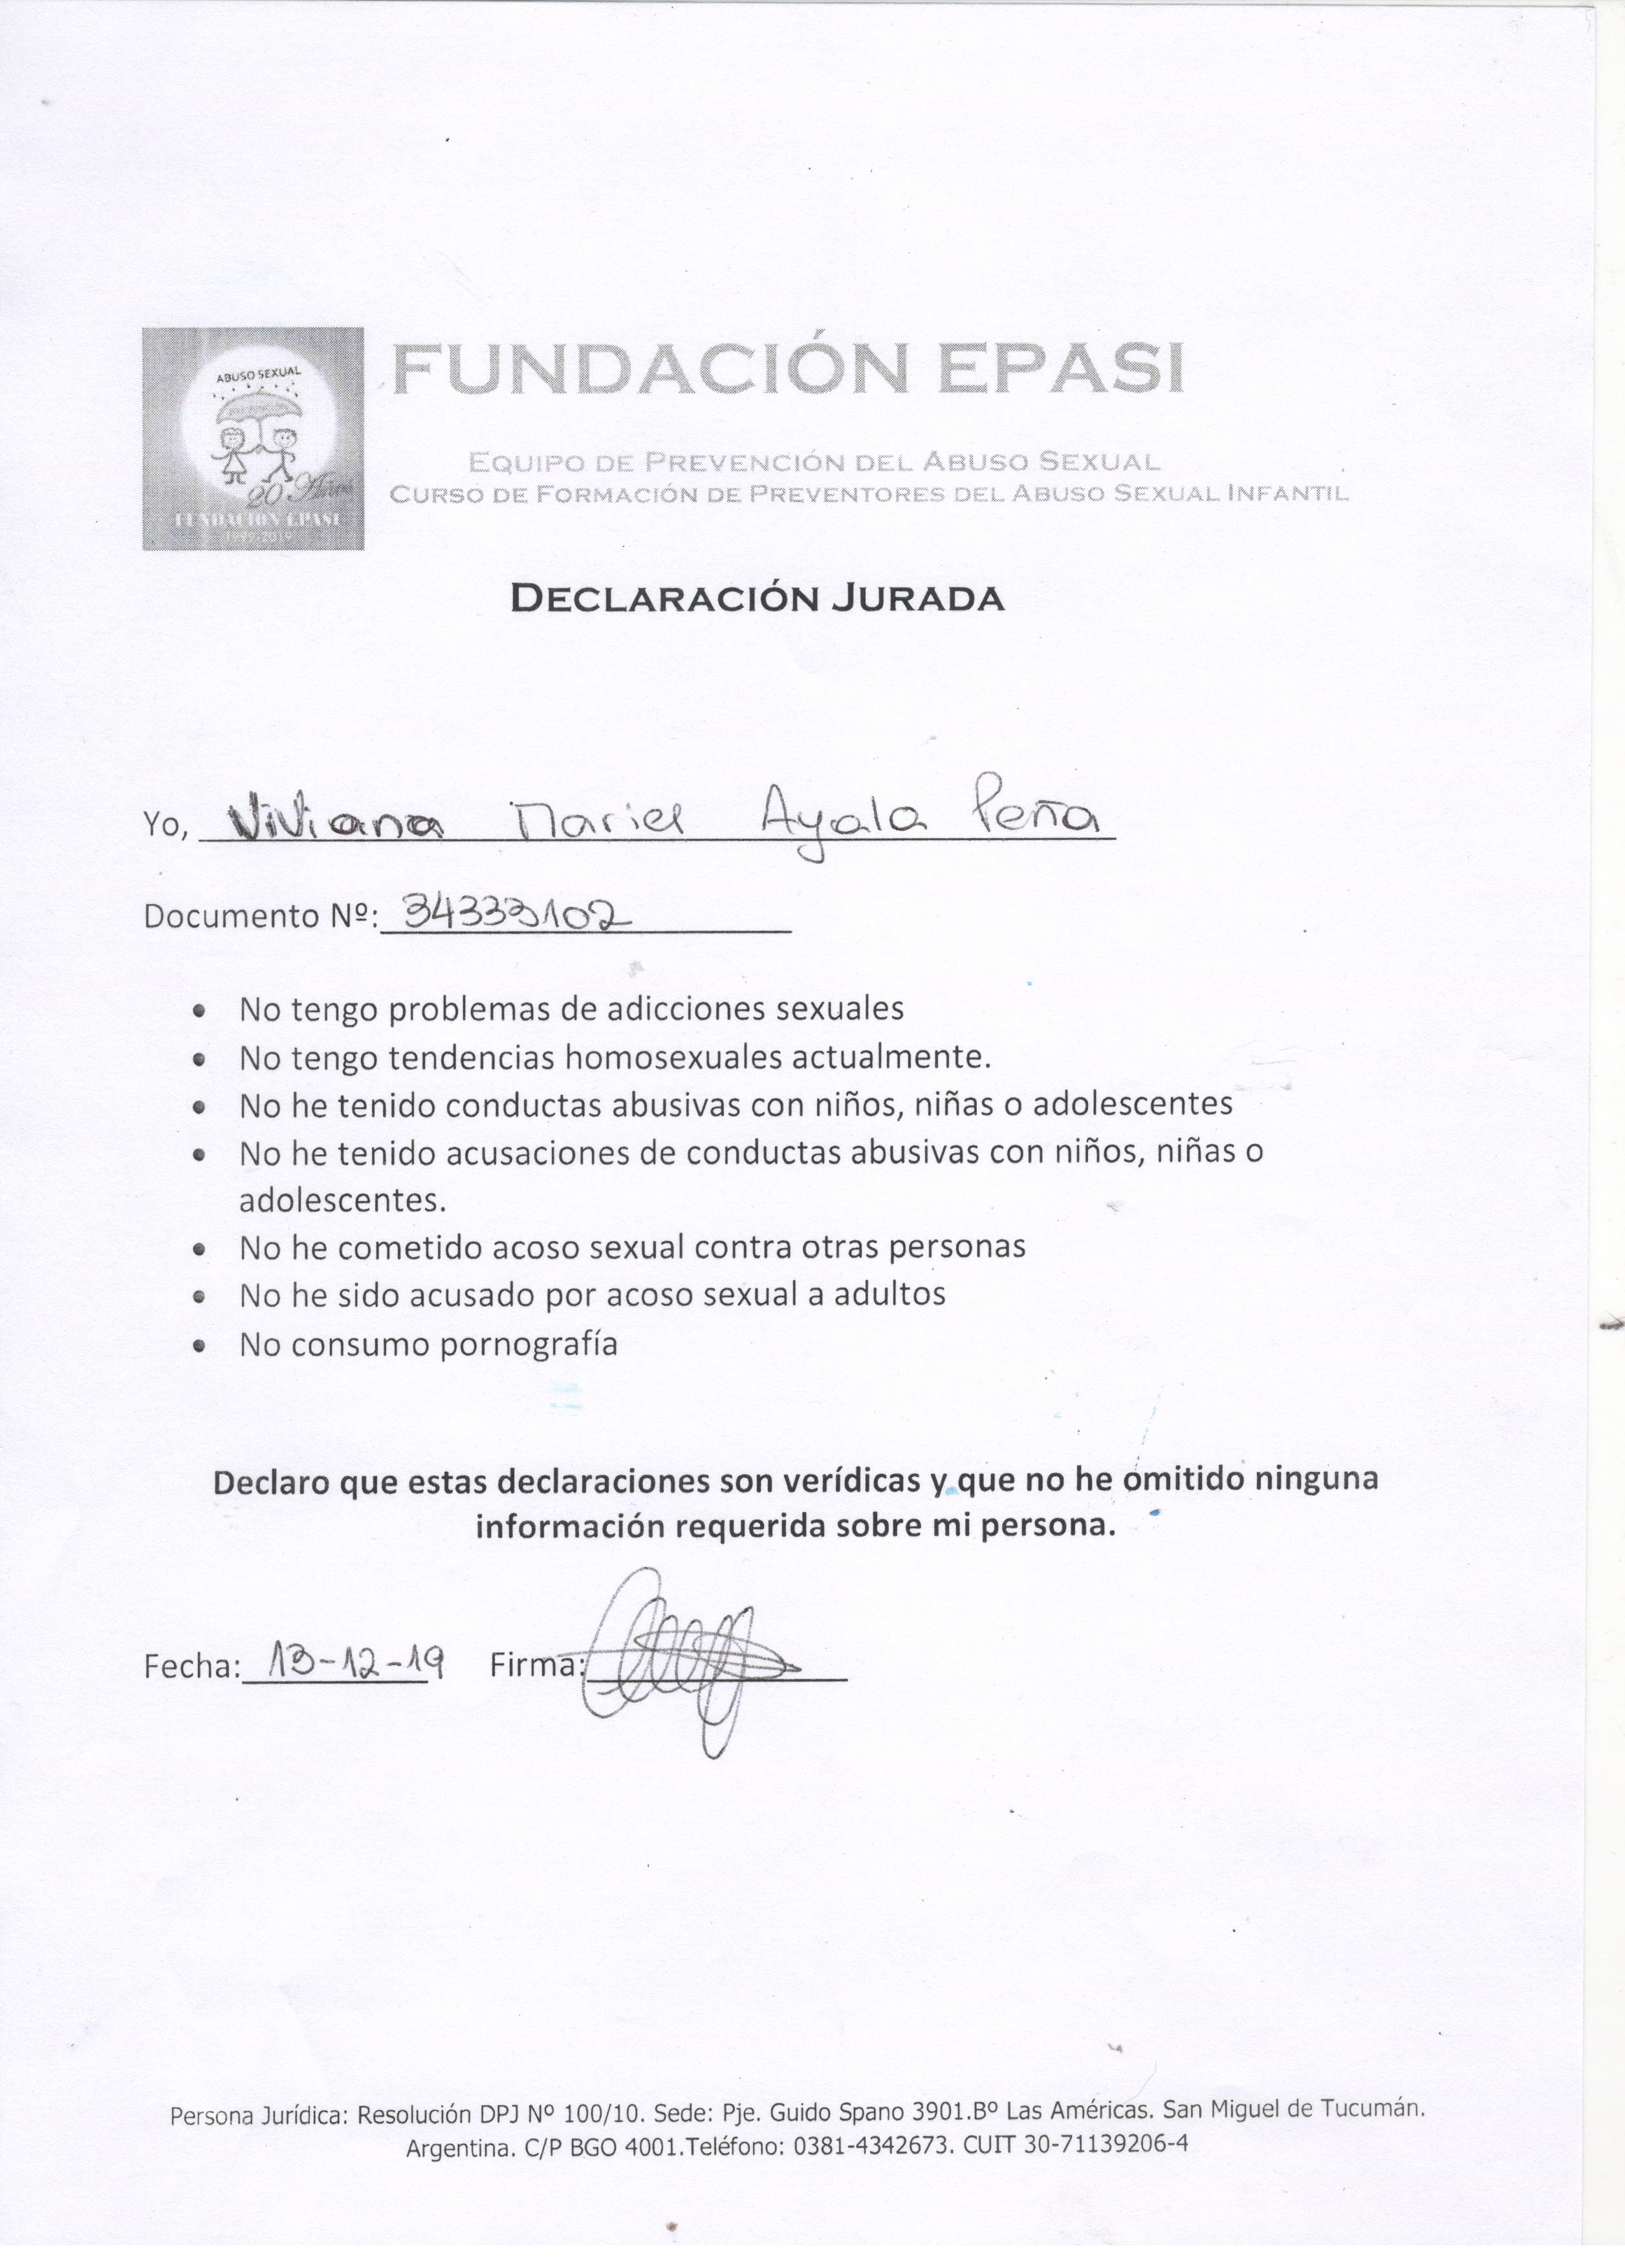 ABUSO SEXUAL
20 Años
FUNDACIÓN EPASI
1999-2019
FUNDACIÓN EPASI
EQUIPO DE PREVENCIÓN DEL ABUSO SEXUAL
CURSO DE FORMACIÓN DE PREVENTORES DEL ABUSO SEXUAL INFANTIL
DECLARACIÓN JURADA
Yo, Viviana Mariel Ayala Peña
Documento Nº: 34333102
• No tengo problemas de adicciones sexuales
• No tengo tendencias homosexuales actualmente.
• No he tenido conductas abusivas con niños, niñas o adolescentes
• No he tenido acusaciones de conductas abusivas con niños, niñas o
adolescentes.
• No he cometido acoso sexual contra otras personas
• No he sido acusado por acoso sexual a adultos
• No consumo pornografía
Declaro que estas declaraciones son verídicas y que no he omitido ninguna
información requerida sobre mi persona.
Fecha: 13-12-19 Firma:
Persona Jurídica: Resolución DPJ Nº 100/10. Sede: Pje. Guido Spano 3901.Bº Las Américas. San Miguel de Tucumán.
Argentina. C/P BGO 4001.Teléfono: 0381-4342673. CUIT 30-71139206-4